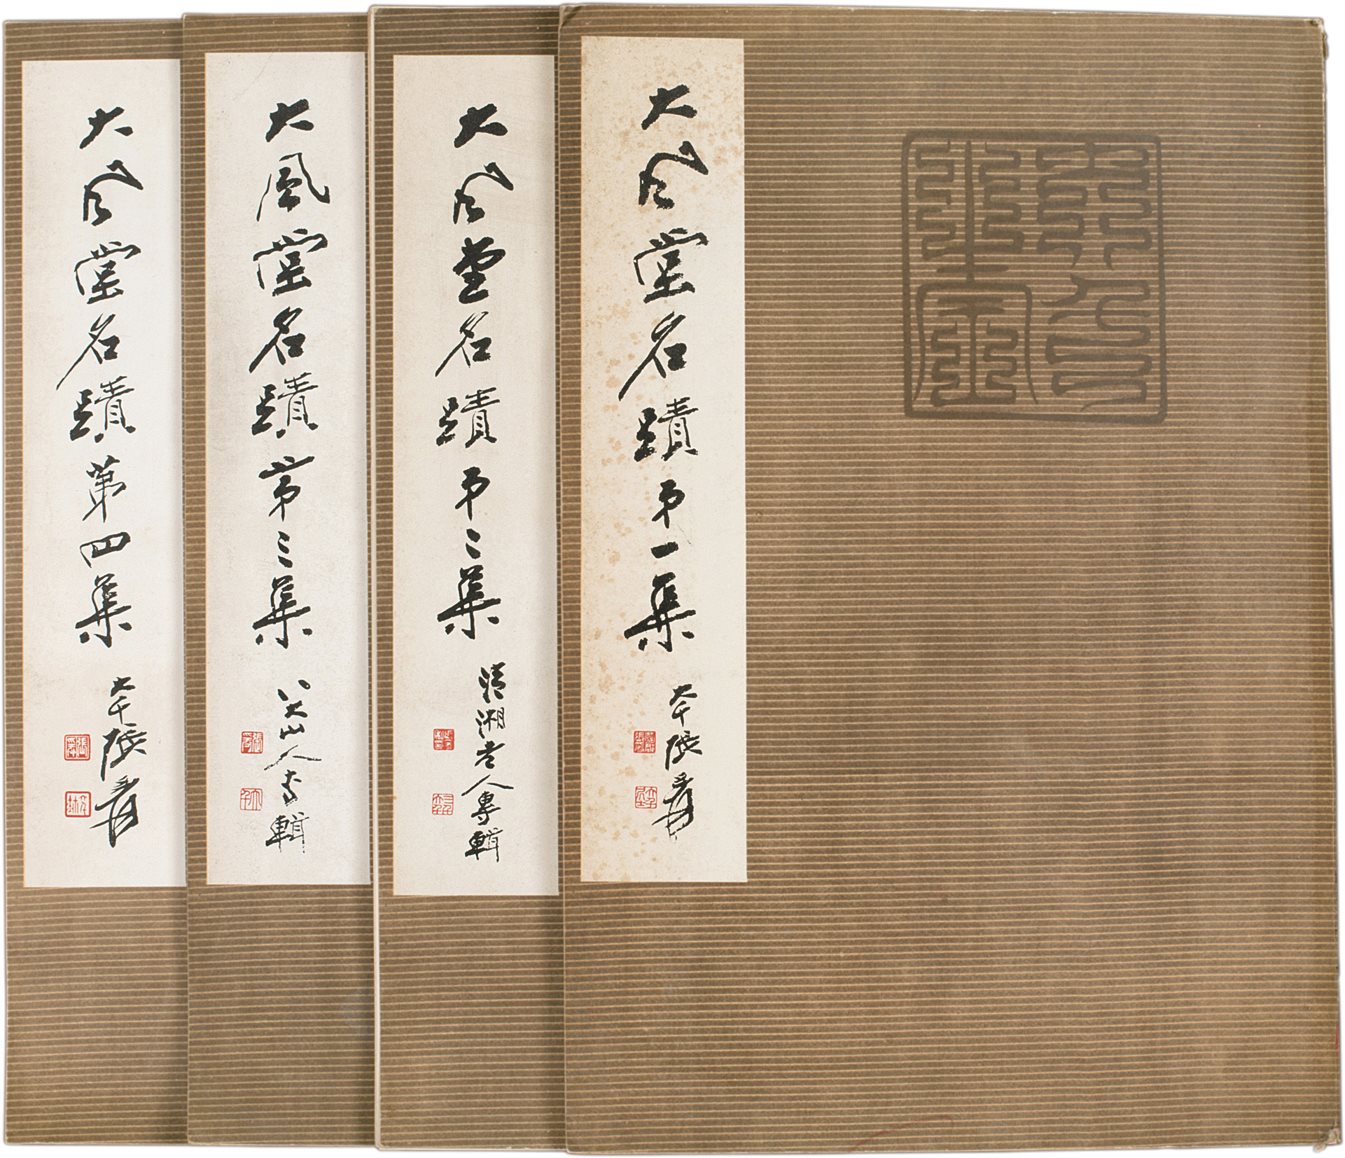 大風堂名蹟第一集
大千張爰
大風堂名蹟第二集
清湘老人專輯
大風堂名蹟第三集
八大山人專輯
大風堂名蹟第四集
大千張爰